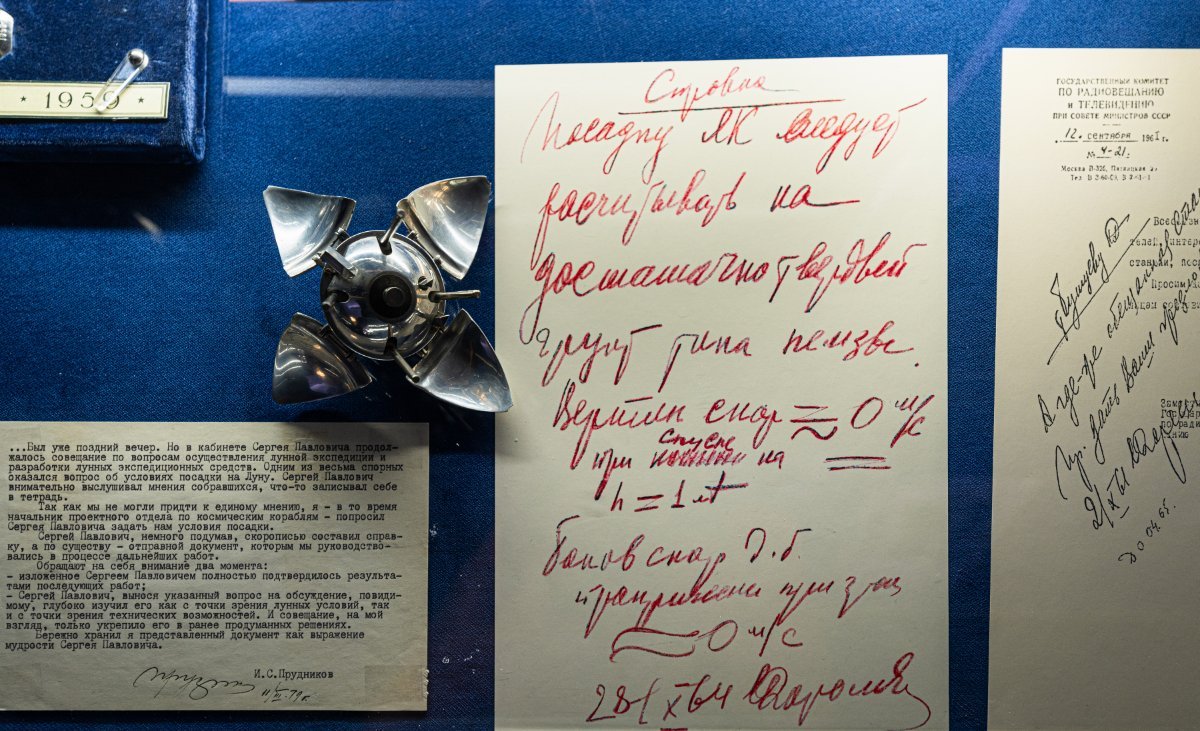 ★ 1959 ★
...Был уже поздний вечер. Но в кабинете Сергея Павловича продол-
жалось совещание по вопросам осуществления лунной экспедиции и
разработки лунных экспедиционных средств. Одним из весьма спорных
оказался вопрос об условиях посадки на Луну. Сергей Павлович
внимательно выслушивал мнения собравшихся, что-то записывал себе
в тетрадь.
Так как мы не могли придти к единому мнению, я - в то время
начальник проектного отдела по космическим кораблям - попросил
Сергея Павловича задать нам условия посадки.
Сергей Павлович, немного подумав, скорописью составил справ-
ку, а по существу - отправной документ, которым мы руководство-
вались в процессе дальнейших работ.
Обращают на себя внимание два момента:
- изложенное Сергеем Павловичем полностью подтвердилось результа-
тами последующих работ;
- Сергей Павлович, вынося указанный вопрос на обсуждение, повиди-
мому, глубоко изучил его как с точки зрения лунных условий, так
и с точки зрения технических возможностей. И совещание, на мой
взгляд, только укрепило его в ранее продуманных решениях.
Бережно хранил я представленный документ как выражение
мудрости Сергея Павловича.
И.С.Прудников
Справка
Посадку ЛК следует
расчитывать на
достаточно твердый
грунт типа пемзы.
Вертик скор ≈ 0 м/с
при спуске на
h = 1 м
Боков скор д.б.
при
≈ 0 м/с
28/X-64 Королев
ГОСУДАРСТВЕННЫЙ КОМИТЕТ
ПО РАДИОВЕЩАНИЮ
и ТЕЛЕВИДЕНИЮ
ПРИ СОВЕТЕ МИНИСТРОВ СССР
12. сентября 1961 г.
№ 4-21.
Москва В-326, Пятницкая 25
Бушуеву
А где-же
дать Ваши
21/X-61 Королев
телей, интере
станции, пос
Просим